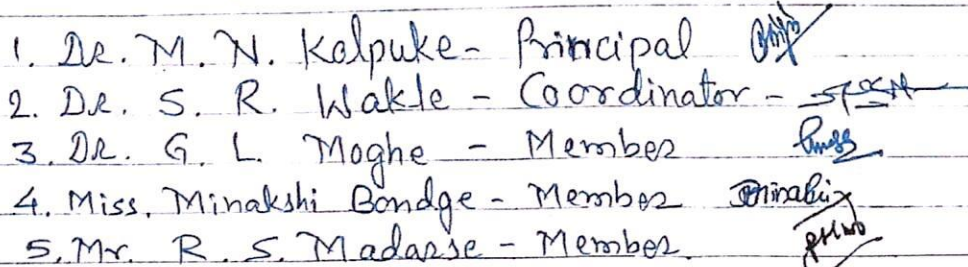 1. Dr. M. N. Kolpuke - Principal
2. Dr. S. R. Wakle - Coordinator -
3. Dr. G. L. Moghe - Member
4. Miss. Minakshi Bondge - Member
5. Mr. R. S. Madarse - Member.